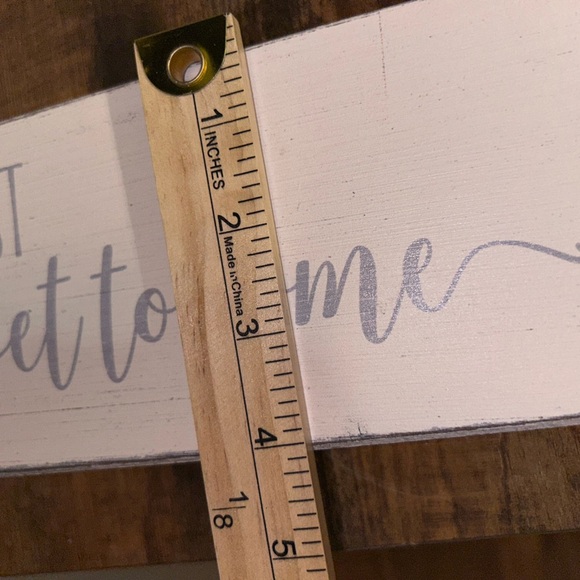 ST
et to me
1 INCHES
2 Made in China
3
4
1/8
5